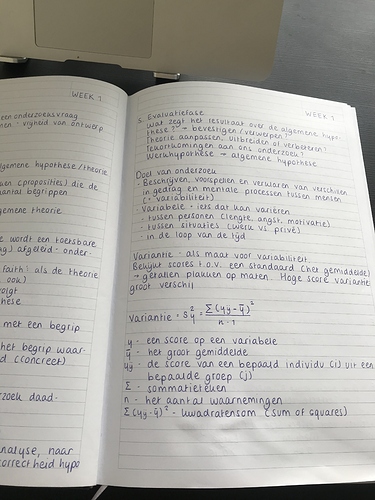 WEEK 1
een onderzoeksvraag
men - vrijheid van ontwerp
algemene hypothese/theorie
(proposities) die de
aantal begrippen
gemene theorie
e wordt een toetsbare
afgeleid - onder-
faith! als de theorie
ook)
volgt
these
met een begrip
het begrip waar-
d (concreet)
zoek daad-
nalyse, naar
correctheid hypo
WEEK 1
5. Evaluatiefase
Wat zegt het resultaat over de algemene hypo-
these? → bevestigen/verwerpen?
Theorie aanpassen, uitbreiden of verbeteren?
Tekortkomingen aan ons onderzoek?
Werkhypothese → algemene hypothese
Doel van onderzoek
- Beschrijven, voorspellen en verklaren van verschillen
in gedrag en mentale processen tussen mensen
(= variabiliteit)
- Variabele = iets dat kan variëren
- tussen personen (lengte, angst, motivatie)
- tussen situaties (werk vs. privé)
- in de loop van de tijd
Variantie - als maat voor variabiliteit.
Bekijkt scores t.o.v. een standaard (het gemiddelde)
→ getallen plakken op maten. Hoge score variantie
groot verschil
Variantie = s²y = Σ(yij - ȳ)² / n - 1
y - een score op een variabele
ȳ - het groot gemiddelde
yij - de score van een bepaald individu (i) uit een
bepaalde groep (j)
Σ - sommatieteken
n - het aantal waarnemingen
Σ(yij - ȳ)² - kwadratensom (sum of squares)